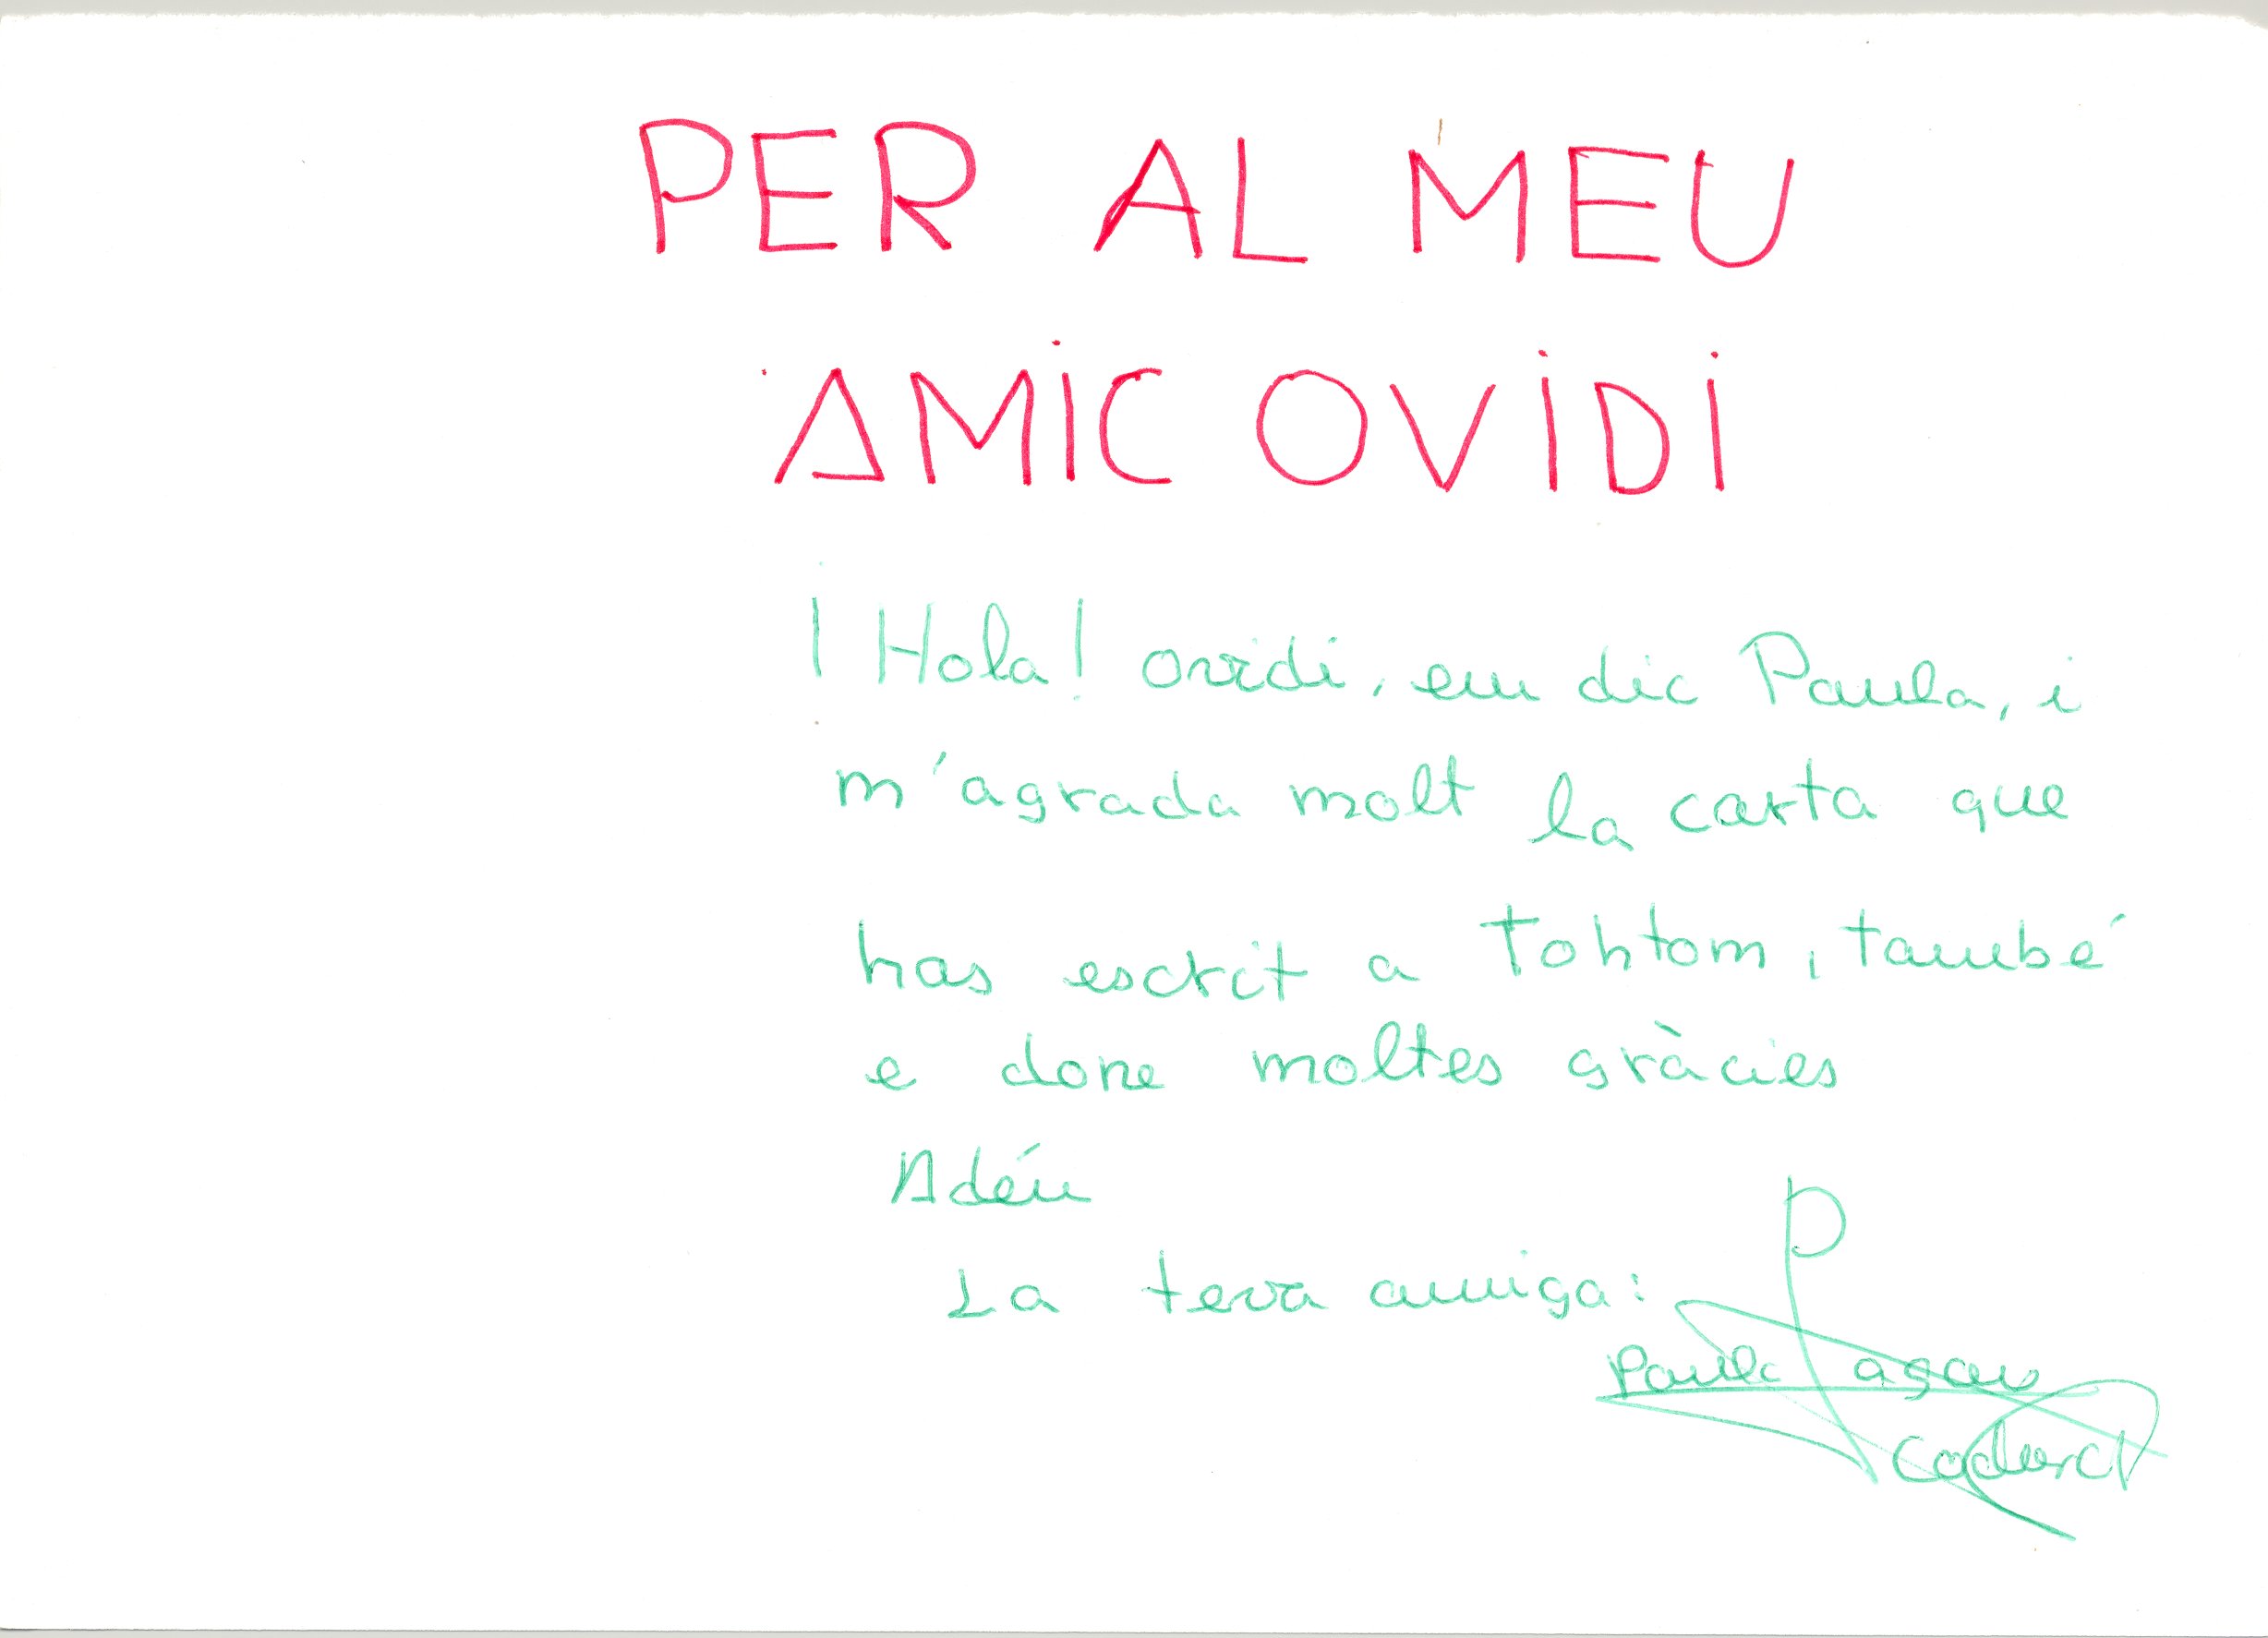 PER AL MEU
AMIC OVIDI
¡Hola! Ovidi, em dic Paula, i
m'agrada molt la carta que
has escrit a Tohtom, també
e done moltes gràcies
Adéu
La teva amiga:
P
Paula
Coderch